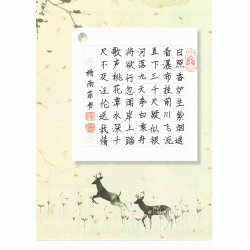 日照香炉生紫烟遥
看瀑布挂前川飞流
直下三千尺疑似银
河落九天李白乘舟
将欲行忽闻岸上踏
歌声桃花潭水深千
尺不及汪伦送我情
杨雨菲书